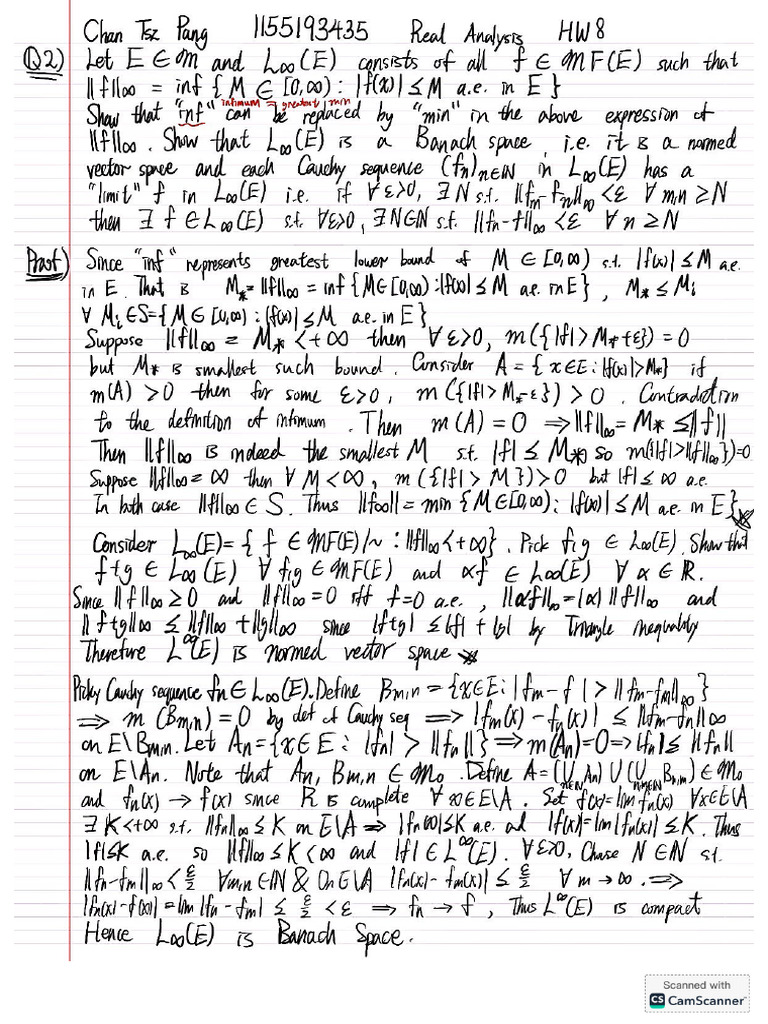 Chan Tsz Pang 1155193435 Real Analysis HW 8
Q2) Let E ∈ 𝓜 and L∞(E) consists of all f ∈ 𝓜F(E) such that
||f||∞ = inf { M ∈ [0,∞) : |f(x)| ≤ M a.e. in E }
infimum = greatest min
Show that "inf" can be replaced by "min" in the above expression of
||f||∞. Show that L∞(E) is a Banach space, i.e. it is a normed
vector space and each Cauchy sequence (fn)n∈ℕ in L∞(E) has a
"limit" f in L∞(E) i.e. if ∀ ε>0, ∃ N s.t. ||fm - fn||∞ < ε ∀ m,n ≥ N
then ∃ f ∈ L∞(E) s.t. ∀ε>0, ∃N∈ℕ s.t. ||fn - f||∞ < ε ∀ n ≥ N
Proof) Since "inf" represents greatest lower bound of M ∈ [0,∞) s.t. |f(x)| ≤ M a.e.
in E. That is M* = ||f||∞ = inf {M∈[0,∞) : |f(x)| ≤ M a.e. in E} , M* ≤ Mi
∀ Mi ∈ S = {M ∈ [0,∞) : |f(x)| ≤ M a.e. in E}
Suppose ||f||∞ = M* < +∞ then ∀ ε>0, m({|f| > M* + ε}) = 0
but M* is smallest such bound. Consider A = { x∈E : |f(x)| > M*} if
m(A) > 0 then for some ε>0, m({|f| > M* - ε}) > 0. Contradiction
to the definition of infimum. Then m(A) = 0 ⇒ ||f||∞ = M* ≤ ||f||
Then ||f||∞ is indeed the smallest M s.t. |f| ≤ M* so m({|f| > ||f||∞}) = 0
Suppose ||f||∞ = ∞ then ∀ M < ∞, m({|f| > M}) > 0 but |f| ≤ ∞ a.e.
In both case ||f||∞ ∈ S. Thus ||f∞|| = min {M∈[0,∞) : |f(x)| ≤ M a.e. in E}
Consider L∞(E) = { f ∈ 𝓜F(E)/~ : ||f||∞ < +∞}. Pick f,g ∈ L∞(E). Show that
f+g ∈ L∞(E) ∀ f,g ∈ 𝓜F(E) and αf ∈ L∞(E) ∀ α ∈ ℝ.
Since ||f||∞ ≥ 0 and ||f||∞ = 0 iff f=0 a.e., ||αf||∞ = |α| ||f||∞ and
||f+g||∞ ≤ ||f||∞ + ||g||∞ since |f+g| ≤ |f| + |g| by Triangle inequality
Therefore L∞(E) is normed vector space
Picky Cauchy sequence fn ∈ L∞(E). Define Bm,n = {x∈E : |fm - f| > ||fn - fm||∞}
⇒ m (Bm,n) = 0 by def of Cauchy seq ⇒ |fm(x) - fn(x)| ≤ ||fm - fn||∞
on E\Bm,n. Let An = {x∈E : |fn| > ||fn||} ⇒ m(An) = 0 ⇒ |fn| ≤ ||fn||
on E\An. Note that An, Bm,n ∈ 𝓜0. Define A = (⋃n∈ℕ An) ∪ (⋃n,m∈ℕ Bn,m) ∈ 𝓜0
and fn(x) → f(x) since ℝ is complete ∀ x∈E\A. Set f(x) = lim fn(x) ∀x∈E\A
∃ K < +∞ s.t. ||fn||∞ ≤ K on E\A ⇒ |fn(x)| ≤ K a.e. and |f(x)| = lim |fn(x)| ≤ K. Thus
|f| ≤ K a.e. so ||f||∞ ≤ K < ∞ and |f| ∈ L∞(E). ∀ε>0, Chose N ∈ ℕ s.t.
||fn - fm||∞ < ε/2 ∀m,n ∈ ℕ & On E\A |fn(x) - fm(x)| ≤ ε/2 ∀ m → ∞. ⇒
|fn(x) - f(x)| = lim |fn - fm| ≤ ε/2 < ε ⇒ fn → f, Thus L∞(E) is compact
Hence L∞(E) is Banach Space.
Scanned with
CS CamScanner